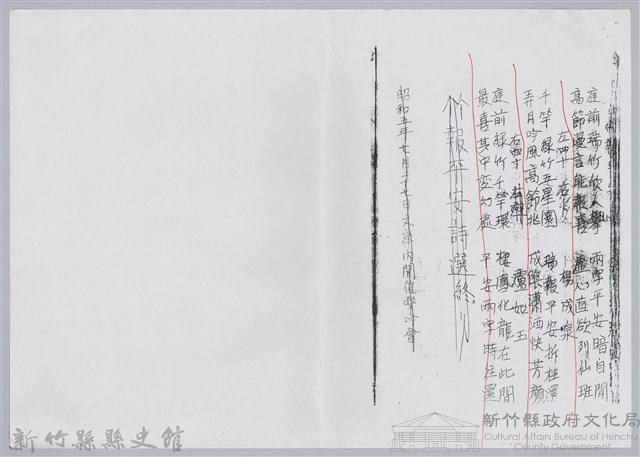 庭前瑞竹 兩字平安暗自開
高節還言能報喜 虛心直欲列仙班
左四十 右 楊成泉
千竿綠竹五星圓 瑞報平安折桂還
弄月吟風高節 成陰瀟洒快芳顏
右四十 左 盧如玉
庭前綠竹千竿環 棲鳳化龍在此間
最喜其中 幻處 平安兩字時往還
竹報平安詩選終
昭和五年 月二十七日文 內開催 吟會
新竹縣縣史館
新竹縣政府文化局
Cultural Affairs Bureau of Hsinchu County Government